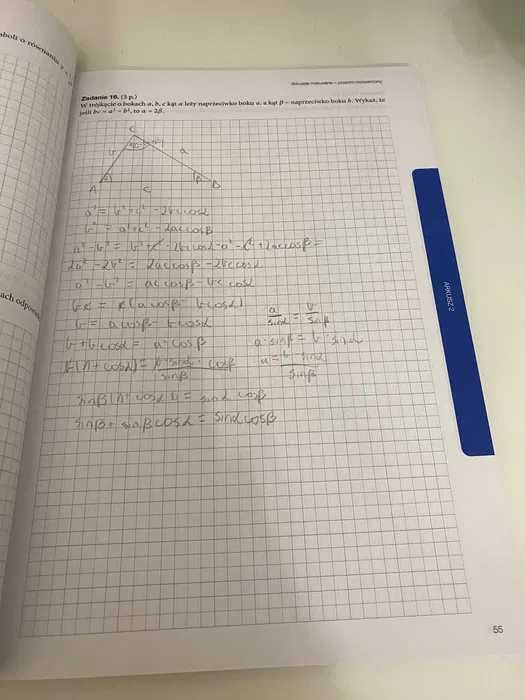 aboli o równaniu
ach odpowi
Zadanie 16. (3 p.)
W trójkącie o bokach a, b, c kąt α leży naprzeciwko boku a, a kąt β – naprzeciwko boku b. Wykaż, że
jeśli bc = a² − b², to α = 2β.
C
b
a
A
c
B
β
a² = b² + c² − 2bc cosα
b² = a² + c² − 2ac cosβ
a² − b² = b² + c² − 2bc cosα − a² − c² + 2ac cosβ =
2a² − 2b² = 2ac cosβ − 2bc cosα
a² − b² = ac cosβ − bc cosα
bc = c(a cosβ − b cosα)
b = a cosβ − b cosα
b + b cosα = a · cosβ
b(1 + cosα) = b · sinα · cosβ / sinβ
sinβ(1 + cosα) = sinα cosβ
sinβ + sinβ cosα = sinα cosβ
a / sinα = b / sinβ
a · sinβ = b · sinα
a = b · sinα / sinβ
ARKUSZ 2
55